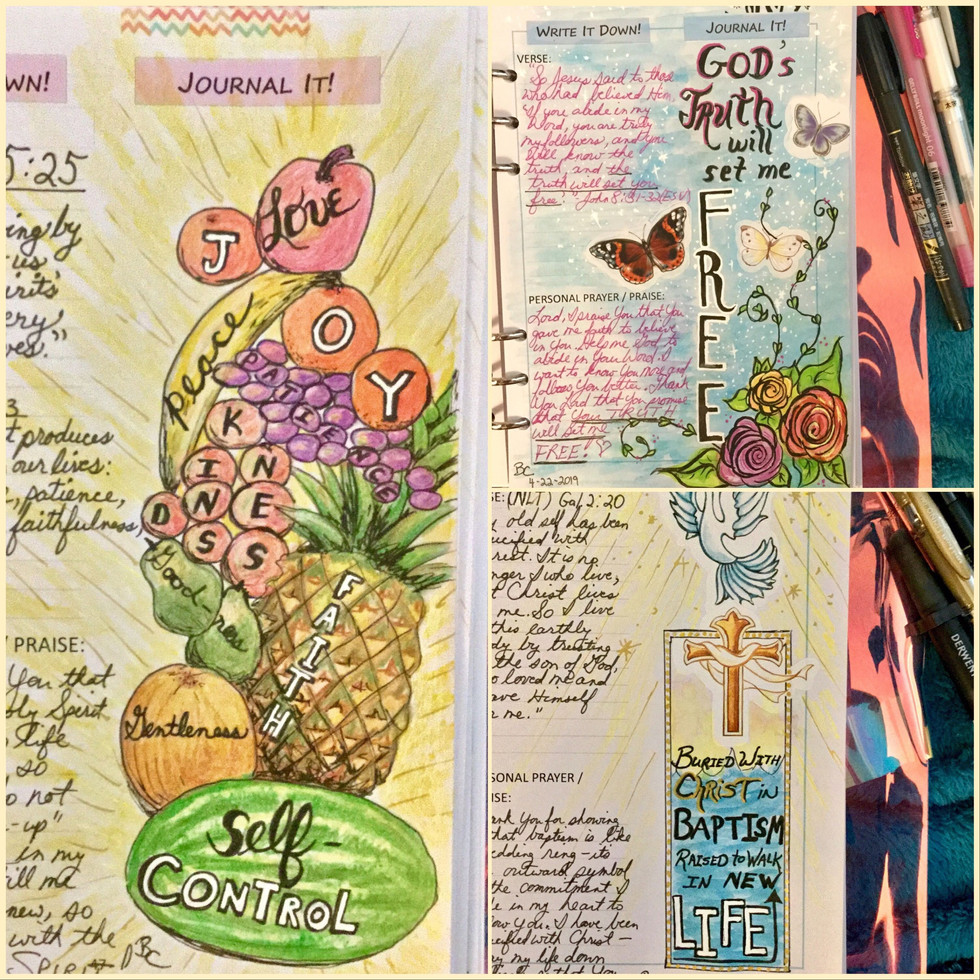 WN!
JOURNAL IT!
5:25
ing by
us
irit's
ery
ves."
3
t produces
our lives:
, patience,
faithfulness,
PRAISE:
You that
oly Spirit
life
so
o not
-up"
in my
ill me
new, so
with the
SPIRIT
BC
Love
JOY
Peace
PATIENCE
KINDNESS
Good-
ness
FAITH
Gentleness
Self-
CONTROL
WRITE IT DOWN!
JOURNAL IT!
VERSE:
"So Jesus said to those
who had believed Him,
"If you abide in my
Word, you are truly
my followers, and you
will know the
truth and the
truth will set you
free!" John 8:31-32 (ESV)
PERSONAL PRAYER / PRAISE:
Lord, I praise You that You
gave me faith to believe
in You. Help me God to
abide in Your Word. I
want to know You more and
follow You better. Thank
You God that You promise
that Your TRUTH
will set me
FREE!
BC
4-22-2019
GOD's
TRuth
will
set me
FREE
SE: (NLT) Gal 2:20
y old self has been
ucified with
rist. It is no
nger I who live,
t Christ lives
me. So I live
this earthly
dy by trusting
the son of God,
o loved me and
ave Himself
r me."
SONAL PRAYER /
ISE:
ank You for showing
that baptism is like
edding ring - its
outward symbol
the commitment I
e in my heart to
ow You. I have been
cified with Christ -
my life down
BURIED WITH
CHRIST IN
BAPTISM
RAISED TO WALK
IN NEW
LIFE
DERWEN